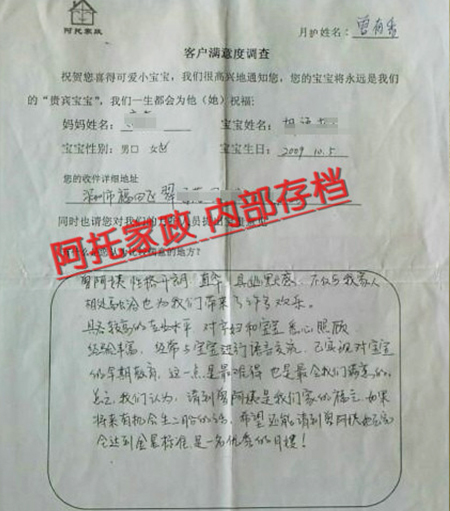 阿托家政
月护姓名: 曾有秀
客户满意度调查
祝贺您喜得可爱小宝宝，我们很高兴地通知您，您的宝宝将永远是我们
的“贵宾宝宝”，我们一生都会为他（她）祝福:
妈妈姓名: 宝宝姓名:
宝宝性别: 男□ 女☑ 宝宝生日: 2009.10.5
您的收件详细地址
深圳市福田区翠
同时也请您对我们的
阿托家政 内部存档
满意的地方?
曾阿姨性格开朗、直率、具幽默感，不仅与我家人
相处融洽也为我们带来了许多欢乐。
具有较高的专业水平，对孕妇和宝宝悉心照顾
经验丰富，经常与宝宝进行语言交流，已实现对宝宝
的早期教育，这一点是最难得也是最令我们满意的。
总之，我们认为，请到曾阿姨是我们家的福音，如果
将来有机会生二胎的话，希望还能请到曾阿姨
会达到金星标准，是一名优秀的月嫂！